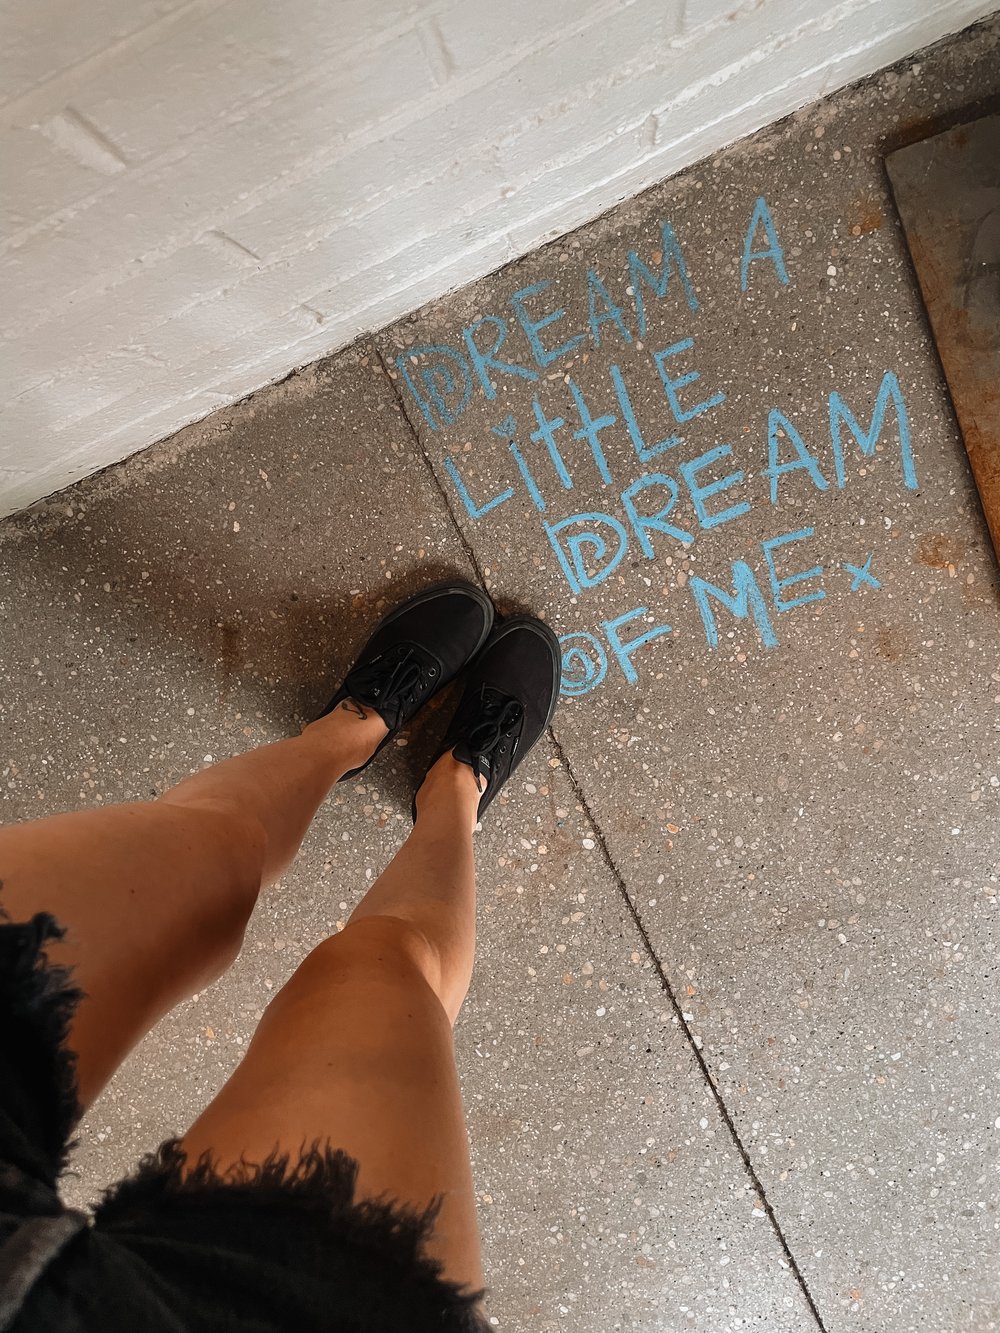 DREAM A
LiTTLE
DREAM
OF ME x